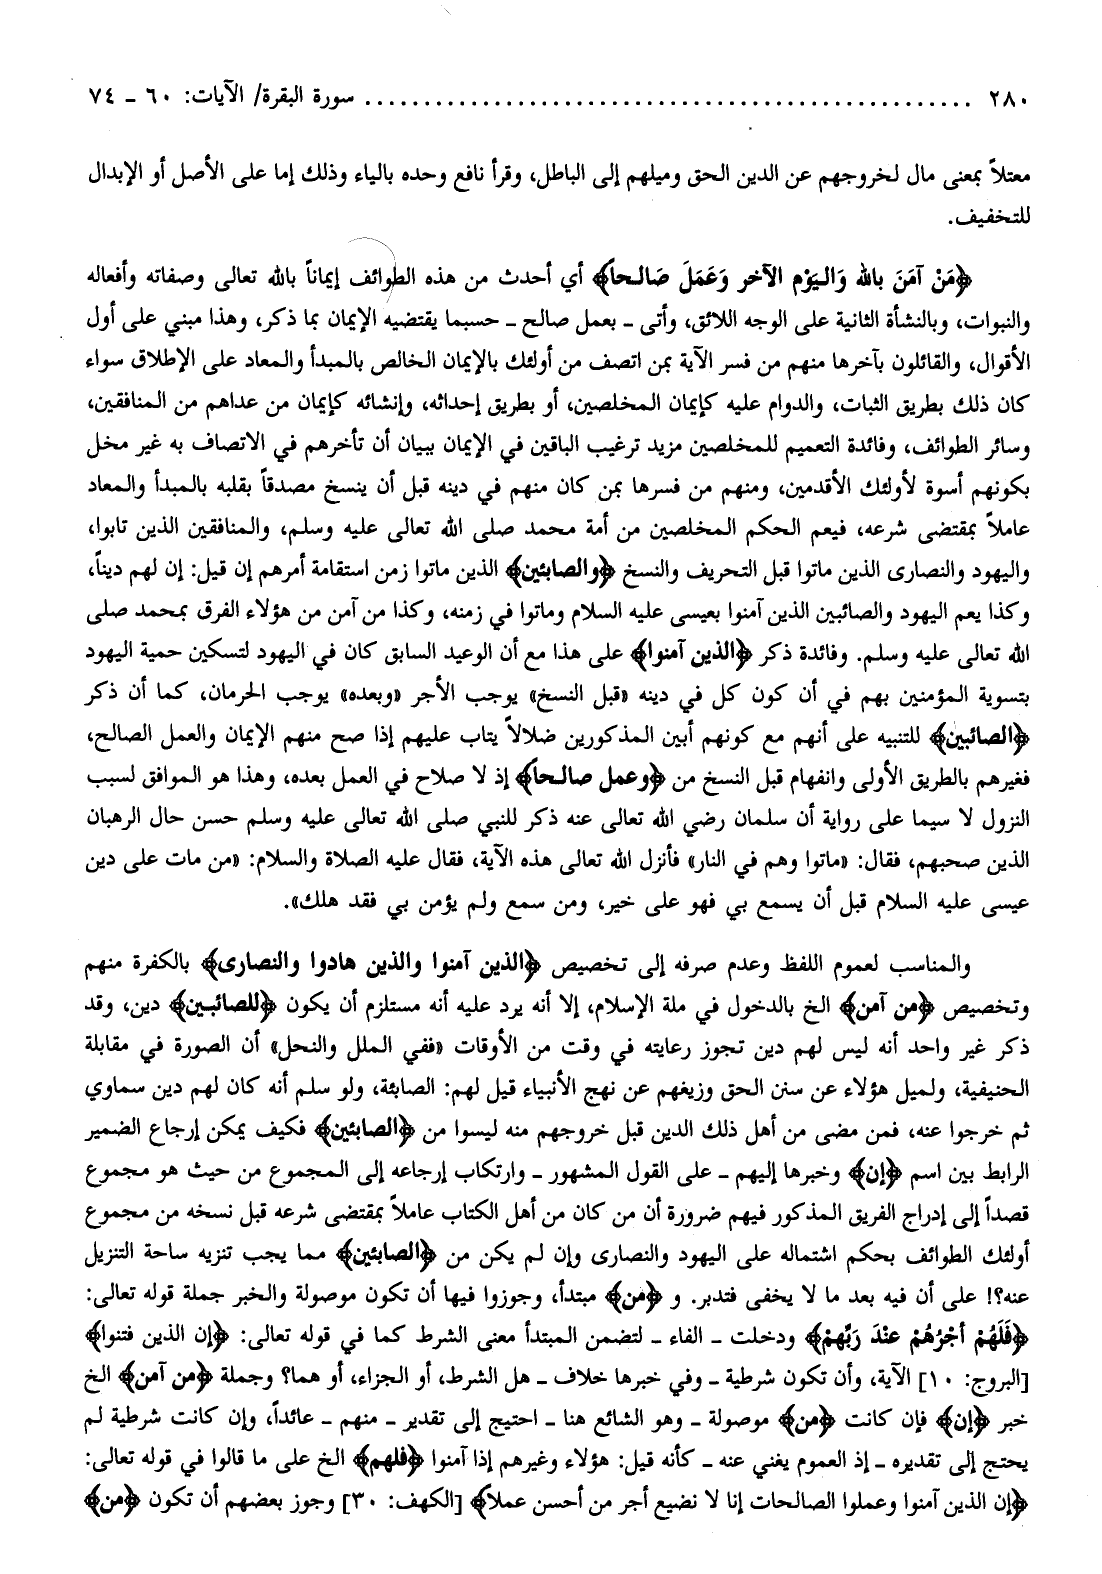 ٢٨٠ ................................................ سورة البقرة/ الآيات: ٦٠ ـ ٧٤
معتلاً بمعنى مال لخروجهم عن الدين الحق وميلهم إلى الباطل، وقرأ نافع وحده بالياء وذلك إما على الأصل أو الإبدال
للتخفيف.
﴿مَنْ آمَنَ بالله وَالـيَوْم الآخر وَعَمَلَ صَالـحاً﴾ أي أحدث من هذه الطوائف إيماناً بالله تعالى وصفاته وأفعاله
والنبوات، وبالنشأة الثانية على الوجه اللائق، وأتى ـ بعمل صالح ـ حسبما يقتضيه الإيمان بما ذكر، وهذا مبني على أول
الأقوال، والقائلون بآخرها منهم من فسر الآية بمن اتصف من أولئك بالإيمان الخالص بالمبدأ والمعاد على الإطلاق سواء
كان ذلك بطريق الثبات، والدوام عليه كإيمان المخلصين، أو بطريق إحداثه، وإنشائه كإيمان من عداهم من المنافقين،
وسائر الطوائف، وفائدة التعميم للمخلصين مزيد ترغيب الباقين في الإيمان ببيان أن تأخرهم في الاتصاف به غير مخل
بكونهم أسوة لأولئك الأقدمين، ومنهم من فسرها بمن كان منهم في دينه قبل أن ينسخ مصدقاً بقلبه بالمبدأ والمعاد
عاملاً بمقتضى شرعه، فيعم الحكم المخلصين من أمة محمد صلى الله تعالى عليه وسلم، والمنافقين الذين تابوا،
واليهود والنصارى الذين ماتوا قبل التحريف والنسخ ﴿والصابئين﴾ الذين ماتوا زمن استقامة أمرهم إن قيل: إن لهم ديناً،
وكذا يعم اليهود والصائبين الذين آمنوا بعيسى عليه السلام وماتوا في زمنه، وكذا من آمن من هؤلاء الفرق بمحمد صلى
الله تعالى عليه وسلم. وفائدة ذكر ﴿الذين آمنوا﴾ على هذا مع أن الوعيد السابق كان في اليهود لتسكين حمية اليهود
بتسوية المؤمنين بهم في أن كون كل في دينه «قبل النسخ» يوجب الأجر «وبعده» يوجب الحرمان، كما أن ذكر
﴿الصائبين﴾ للتنبيه على أنهم مع كونهم أبين المذكورين ضلالاً يتاب عليهم إذا صح منهم الإيمان والعمل الصالح،
فغيرهم بالطريق الأولى وانفهام قبل النسخ من ﴿وعمل صالـحاً﴾ إذ لا صلاح في العمل بعده، وهذا هو الموافق لسبب
النزول لا سيما على رواية أن سلمان رضي الله تعالى عنه ذكر للنبي صلى الله تعالى عليه وسلم حسن حال الرهبان
الذين صحبهم، فقال: «ماتوا وهم في النار» فأنزل الله تعالى هذه الآية، فقال عليه الصلاة والسلام: «من مات على دين
عيسى عليه السلام قبل أن يسمع بي فهو على خير، ومن سمع ولم يؤمن بي فقد هلك».
والمناسب لعموم اللفظ وعدم صرفه إلى تخصيص ﴿الذين آمنوا والذين هادوا والنصارى﴾ بالكفرة منهم
وتخصيص ﴿من آمن﴾ الخ بالدخول في ملة الإسلام، إلا أنه يرد عليه أنه مستلزم أن يكون ﴿للصائبـين﴾ دين، وقد
ذكر غير واحد أنه ليس لهم دين تجوز رعايته في وقت من الأوقات «ففي الملل والنحل» أن الصورة في مقابلة
الحنيفية، ولميل هؤلاء عن سنن الحق وزيغهم عن نهج الأنبياء قيل لهم: الصابئة، ولو سلم أنه كان لهم دين سماوي
ثم خرجوا عنه، فمن مضى من أهل ذلك الدين قبل خروجهم منه ليسوا من ﴿الصابئين﴾ فكيف يمكن إرجاع الضمير
الرابط بين اسم ﴿إن﴾ وخبرها إليهم ـ على القول المشهور ـ وارتكاب إرجاعه إلى المجموع من حيث هو مجموع
قصداً إلى إدراج الفريق المذكور فيهم ضرورة أن من كان من أهل الكتاب عاملاً بمقتضى شرعه قبل نسخه من مجموع
أولئك الطوائف بحكم اشتماله على اليهود والنصارى وإن لم يكن من ﴿الصابئين﴾ مما يجب تنزيه ساحة التنزيل
عنه؟! على أن فيه بعد ما لا يخفى فتدبر. و ﴿من﴾ مبتدأ، وجوزوا فيها أن تكون موصولة والخبر جملة قوله تعالى:
﴿فَلَهُمْ أجْرُهُمْ عنْدَ رَبّهمْ﴾ ودخلت ـ الفاء ـ لتضمن المبتدأ معنى الشرط كما في قوله تعالى: ﴿إن الذين فتنوا﴾
[البروج: ١٠] الآية، وأن تكون شرطية ـ وفي خبرها خلاف ـ هل الشرط، أو الجزاء، أو هما؟ وجملة ﴿من آمن﴾ الخ
خبر ﴿إن﴾ فإن كانت ﴿من﴾ موصولة ـ وهو الشائع هنا ـ احتيج إلى تقدير ـ منهم ـ عائداً، وإن كانت شرطية لم
يحتج إلى تقديره ـ إذ العموم يغني عنه ـ كأنه قيل: هؤلاء وغيرهم إذا آمنوا ﴿فلهم﴾ الخ على ما قالوا في قوله تعالى:
﴿إن الذين آمنوا وعملوا الصالحات إنا لا نضيع أجر من أحسن عملاً﴾ [الكهف: ٣٠] وجوز بعضهم أن تكون ﴿من﴾